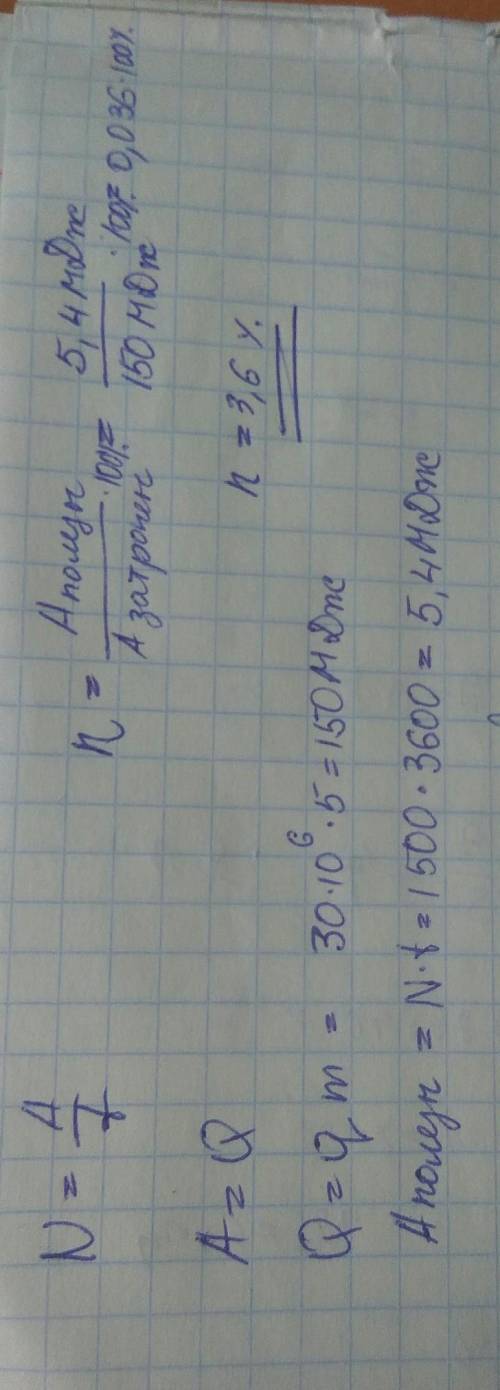 N = A/t
n = A полезн / A затрачен · 100% = 5,4 МДж / 150 МДж · 100% = 0,036 · 100%
A = Q
n = 3,6 %
Q = q m = 30·10⁶ · 5 = 150 МДж
A полезн = N · t = 1500 · 3600 = 5,4 МДж